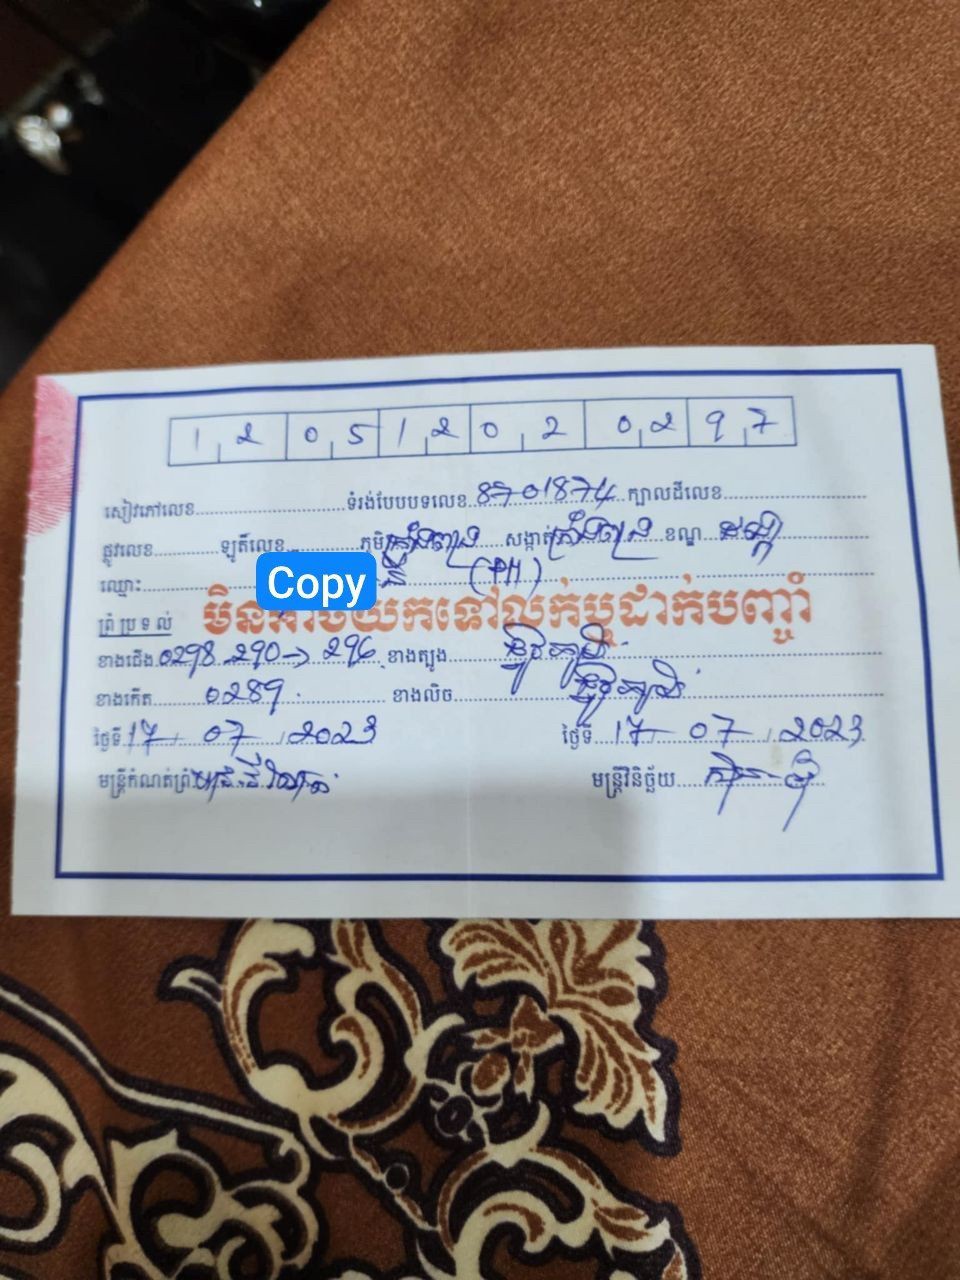 1 2 0 5 1 2 0 2 0 2 9 7
សៀវភៅលេខ.......... ទំរង់បែបបទលេខ 8701874 ក្បាលដីលេខ..........
ផ្លូវលេខ.......... ឡូតិ៍លេខ.......... ភូមិ សង្កាត់ ខណ្ឌ ដង្កោ
ឈ្មោះ.......... (PH)
Copy
មិនអាចយកទៅលក់ឬដាក់បញ្ចាំ
ព្រំប្រទល់
ខាងជើង 0298.290→296 ខាងត្បូង ផ្លូវភូមិ
ខាងកើត 0289 ខាងលិច ផ្លូវភូមិ
ថ្ងៃទី 17 07 2023 ថ្ងៃទី 17 07 2023
មន្រ្តីកំណត់ព្រំ មន្រ្តីវិនិច្ឆ័យ